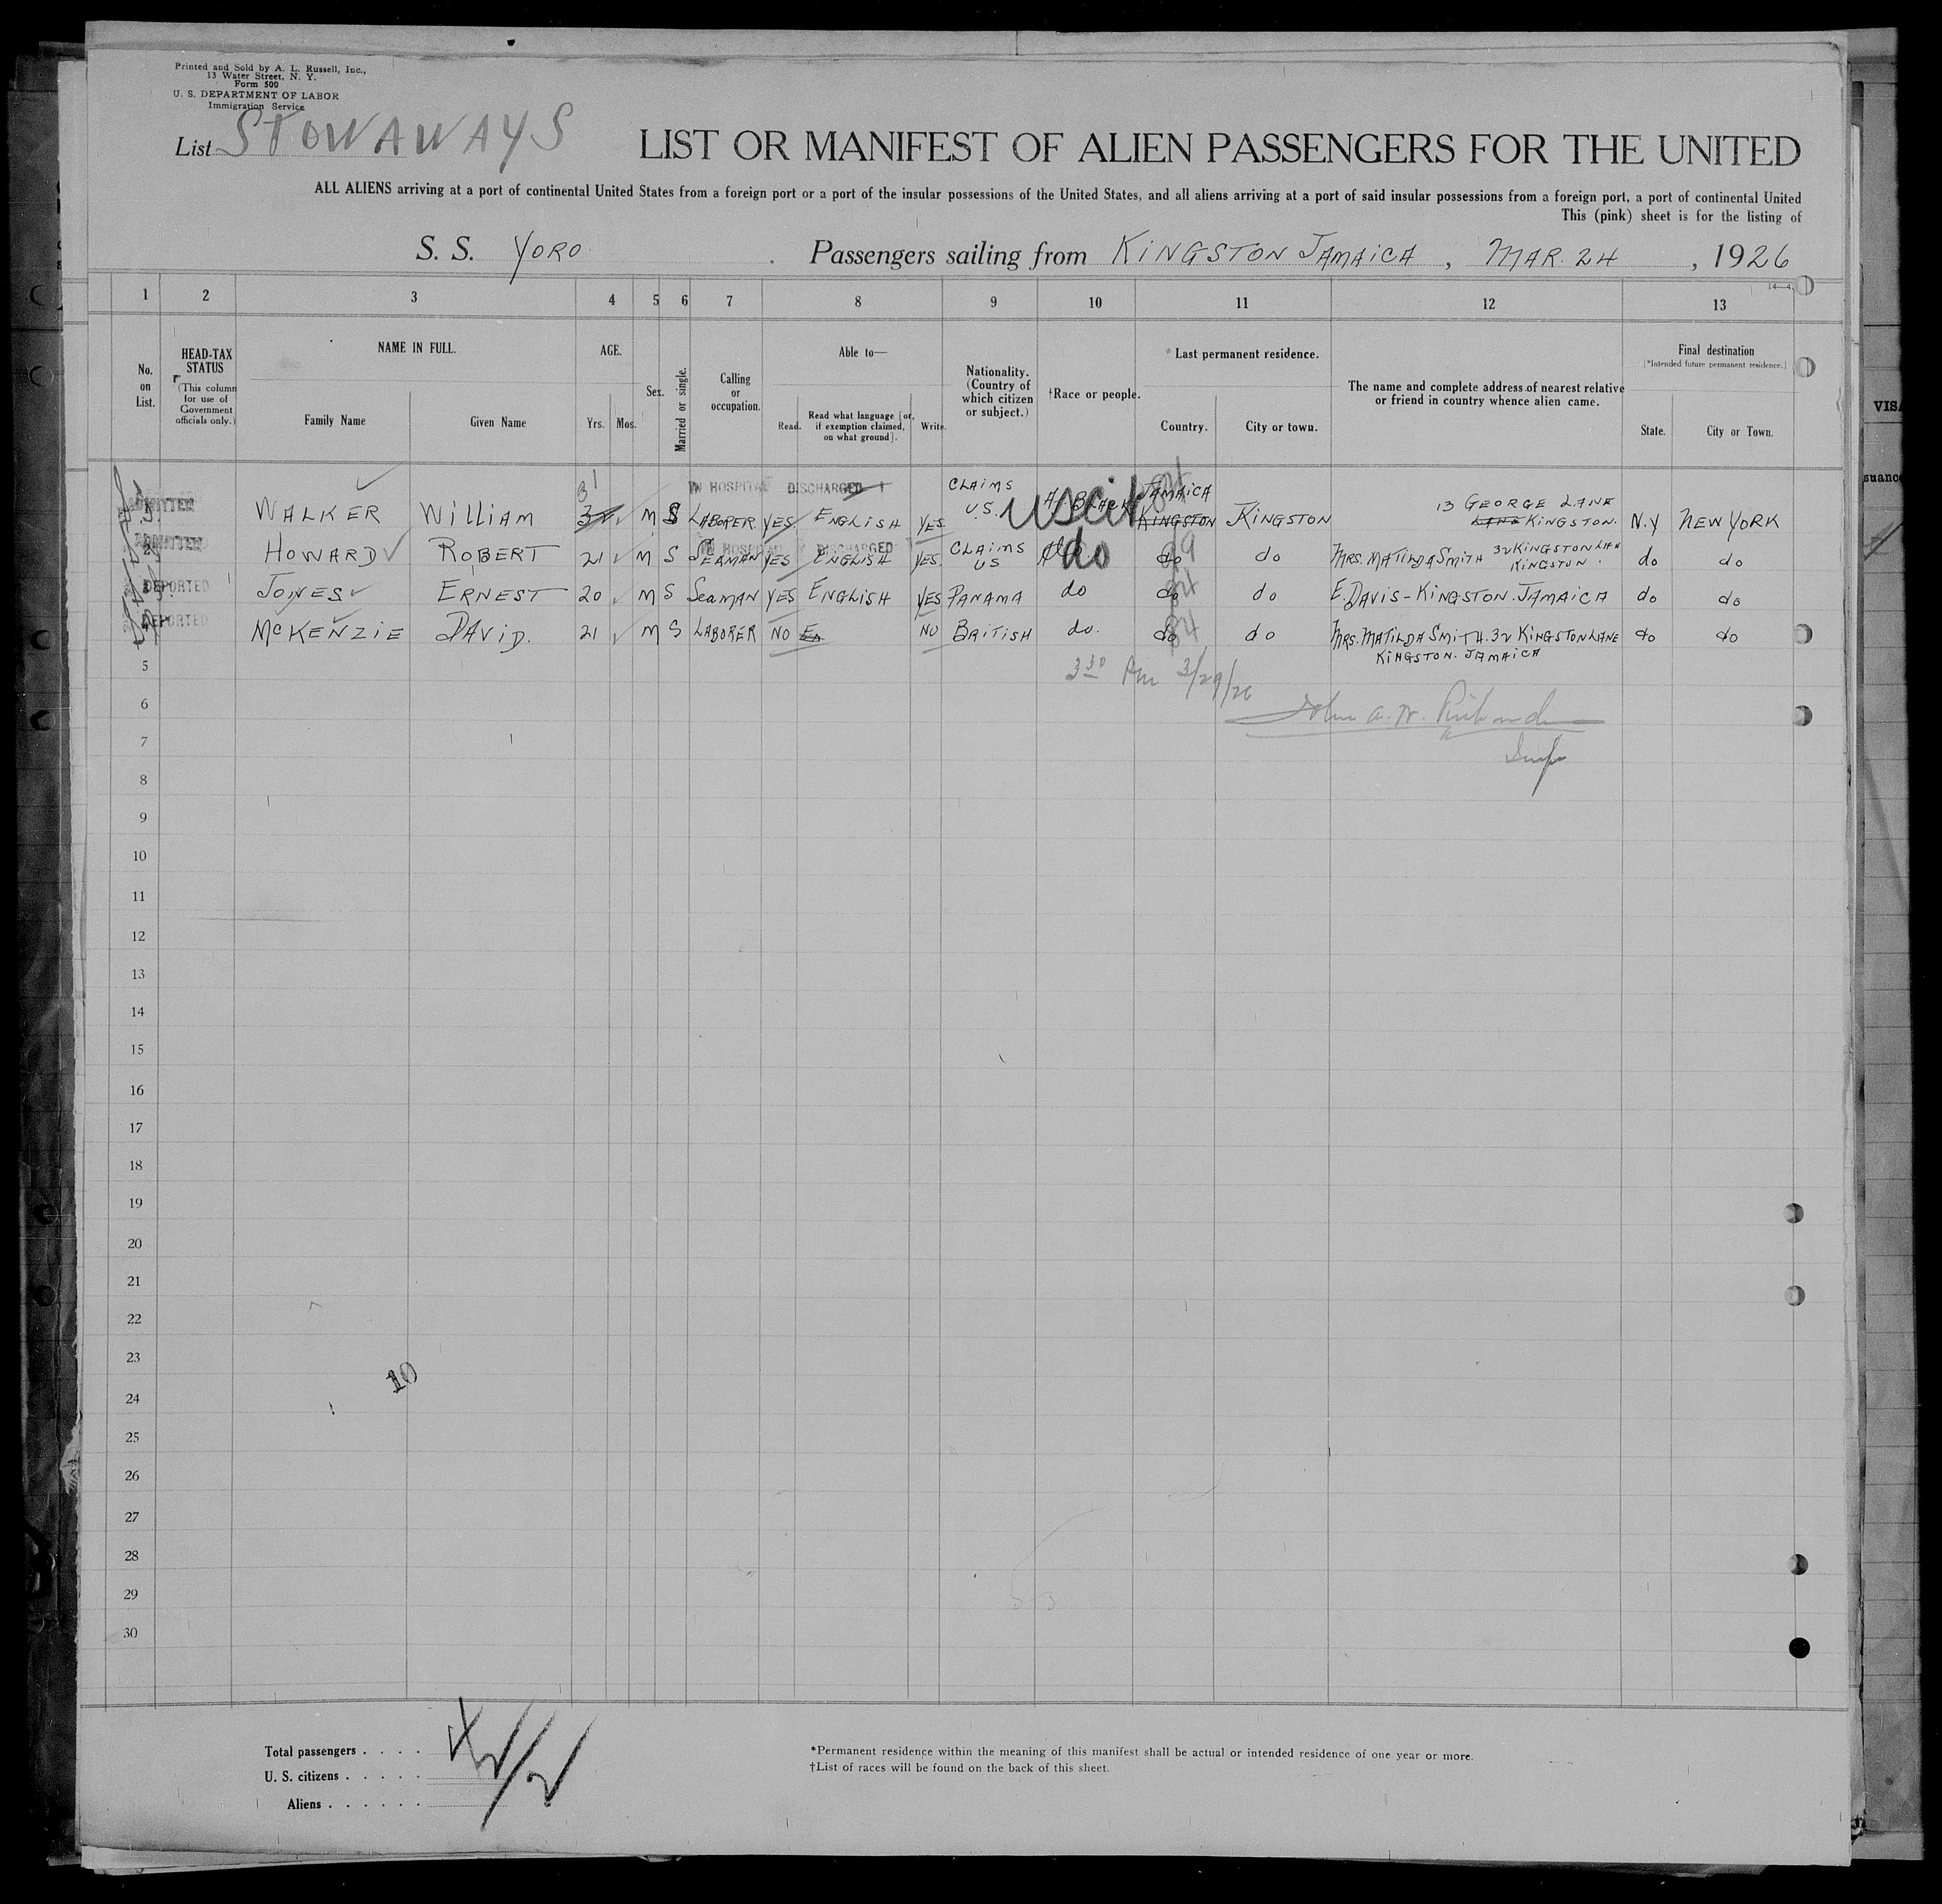 Printed and Sold by A. L. Russell, Inc.,
13 Water Street, N. Y.
Form 500
U. S. DEPARTMENT OF LABOR
Immigration Service
List STOWAWAYS
LIST OR MANIFEST OF ALIEN PASSENGERS FOR THE UNITED
ALL ALIENS arriving at a port of continental United States from a foreign port or a port of the insular possessions of the United States, and all aliens arriving at a port of said insular possessions from a foreign port, a port of continental United
This (pink) sheet is for the listing of
S. S. YORO Passengers sailing from KINGSTON JAMAICA, MAR. 24, 1926
14—4
1 2 3 4 5 6 7 8 9 10 11 12 13
No. on List.
HEAD-TAX STATUS
(This column for use of Government officials only.)
NAME IN FULL.
Family Name Given Name
AGE.
Yrs. Mos.
Sex.
Married or single.
Calling or occupation.
Able to—
Read. Read what language [or, if exemption claimed, on what ground]. Write.
Nationality. (Country of which citizen or subject.)
†Race or people.
*Last permanent residence.
Country. City or town.
The name and complete address of nearest relative or friend in country whence alien came.
Final destination
(*Intended future permanent residence.)
State. City or Town.
ADMITTED WALKER WILLIAM 31 32 M S LABORER YES ENGLISH YES CLAIMS U.S. BLACK US cit JAMAICA KINGSTON KINGSTON 13 GEORGE LANE LANE KINGSTON. N.Y NEW YORK
IN HOSPITAL DISCHARGED
ADMITTED HOWARD ROBERT 21 M S SEAMAN YES ENGLISH YES. CLAIMS US do do do MRS. MATILDA SMITH 32 KINGSTON LAN KINGSTON. do do
IN HOSPITAL DISCHARGED
DEPORTED JONES ERNEST 20 M S SEAMAN YES ENGLISH YES PANAMA do do do E. DAVIS - KINGSTON. JAMAICA do do
DEPORTED McKENZIE DAVID. 21 M S LABORER NO En NO BRITISH do. do do MRS. MATILDA SMITH. 32 KINGSTON LANE do do
KINGSTON. JAMAICA
5
3 30 Pm 3/29/26
6
John A. W.
7
Insp
8
9
10
11
12
13
14
15
16
17
18
19
20
21
22
23
10
24
25
26
27
28
29
30
Total passengers . . . .
U. S. citizens . . . . .
Aliens . . . . . .
*Permanent residence within the meaning of this manifest shall be actual or intended residence of one year or more.
†List of races will be found on the back of this sheet.
VISA
suance